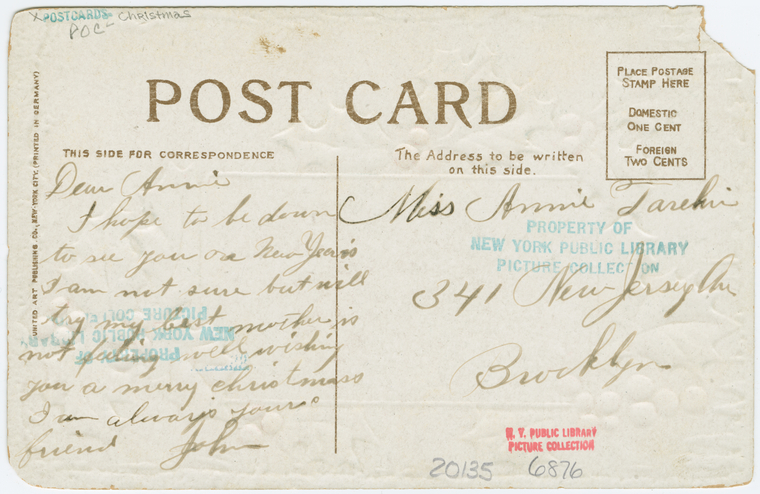 X POSTCARDS- Christmas
POC-
POST CARD
PLACE POSTAGE
STAMP HERE
DOMESTIC
ONE CENT
FOREIGN
TWO CENTS
UNITED ART PUBLISHING CO., NEW YORK CITY. (PRINTED IN GERMANY)
THIS SIDE FOR CORRESPONDENCE
Dear Annie
I hope to be down
to see you on New Years
I am not sure but will
try my best mother is
not feeling well wishing
you a merry christmass
I am always yours
friend John
The Address to be written
on this side.
Miss Annie
341 New Jersey Ave
Brooklyn
PROPERTY OF
NEW YORK PUBLIC LIBRARY
PICTURE COLLECTION
PROPERTY OF
NEW YORK PUBLIC LIBRARY
PICTURE COLLECTION
N. Y. PUBLIC LIBRARY
PICTURE COLLECTION
20135 6876